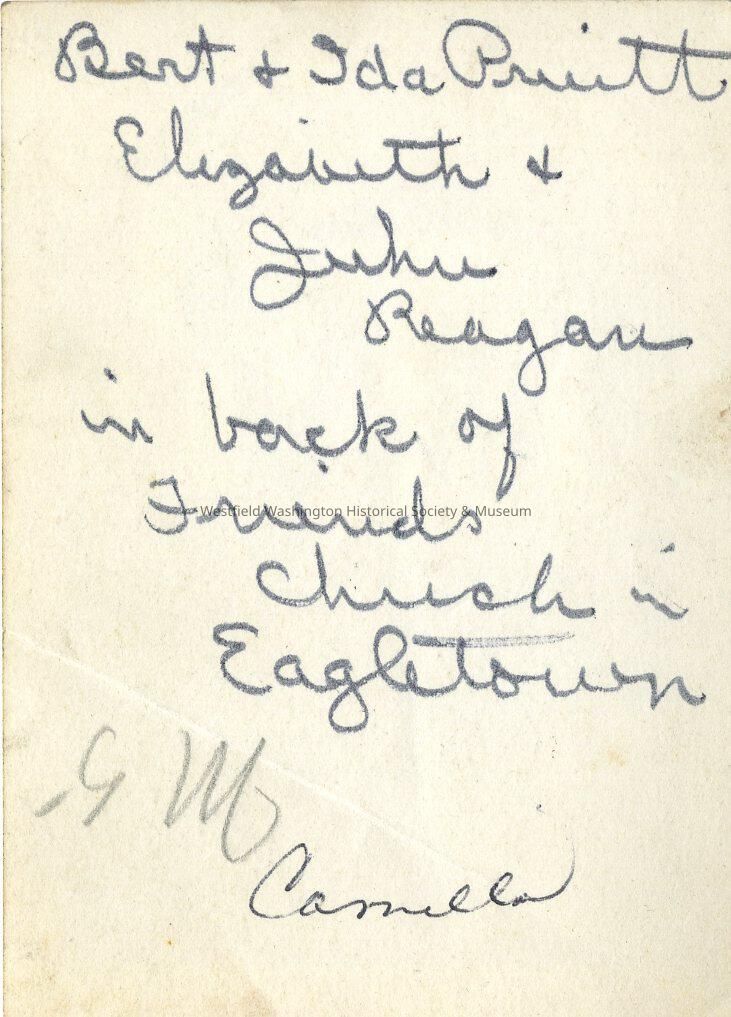 Bert & Ida Pruitt
Elizabeth &
John
Reagan
in back of
Friends
Westfield Washington Historical Society & Museum
Church in
Eagletown
Camella